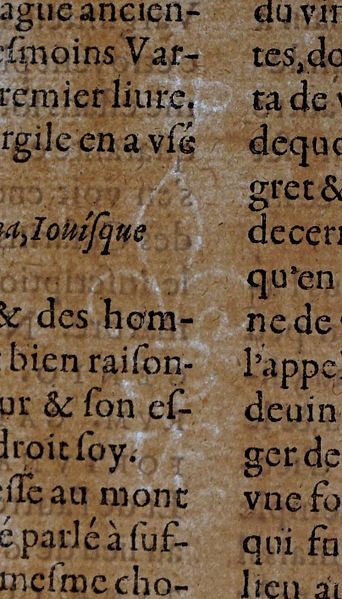 ague ancien-
eſmoins Var-
remier liure.
rgile en a vſé
na, Iouiſque
& des hom-
bien raiſon-
ur & ſon eſ-
droit ſoy.
eſſe au mont
é parlé à ſuf-
meſme cho-
du vin
tes, do
ta de v
dequo
gret &
decern
qu'en
ne de
l'appel
deuin
ger de
vne fo
qui fu
lieu au